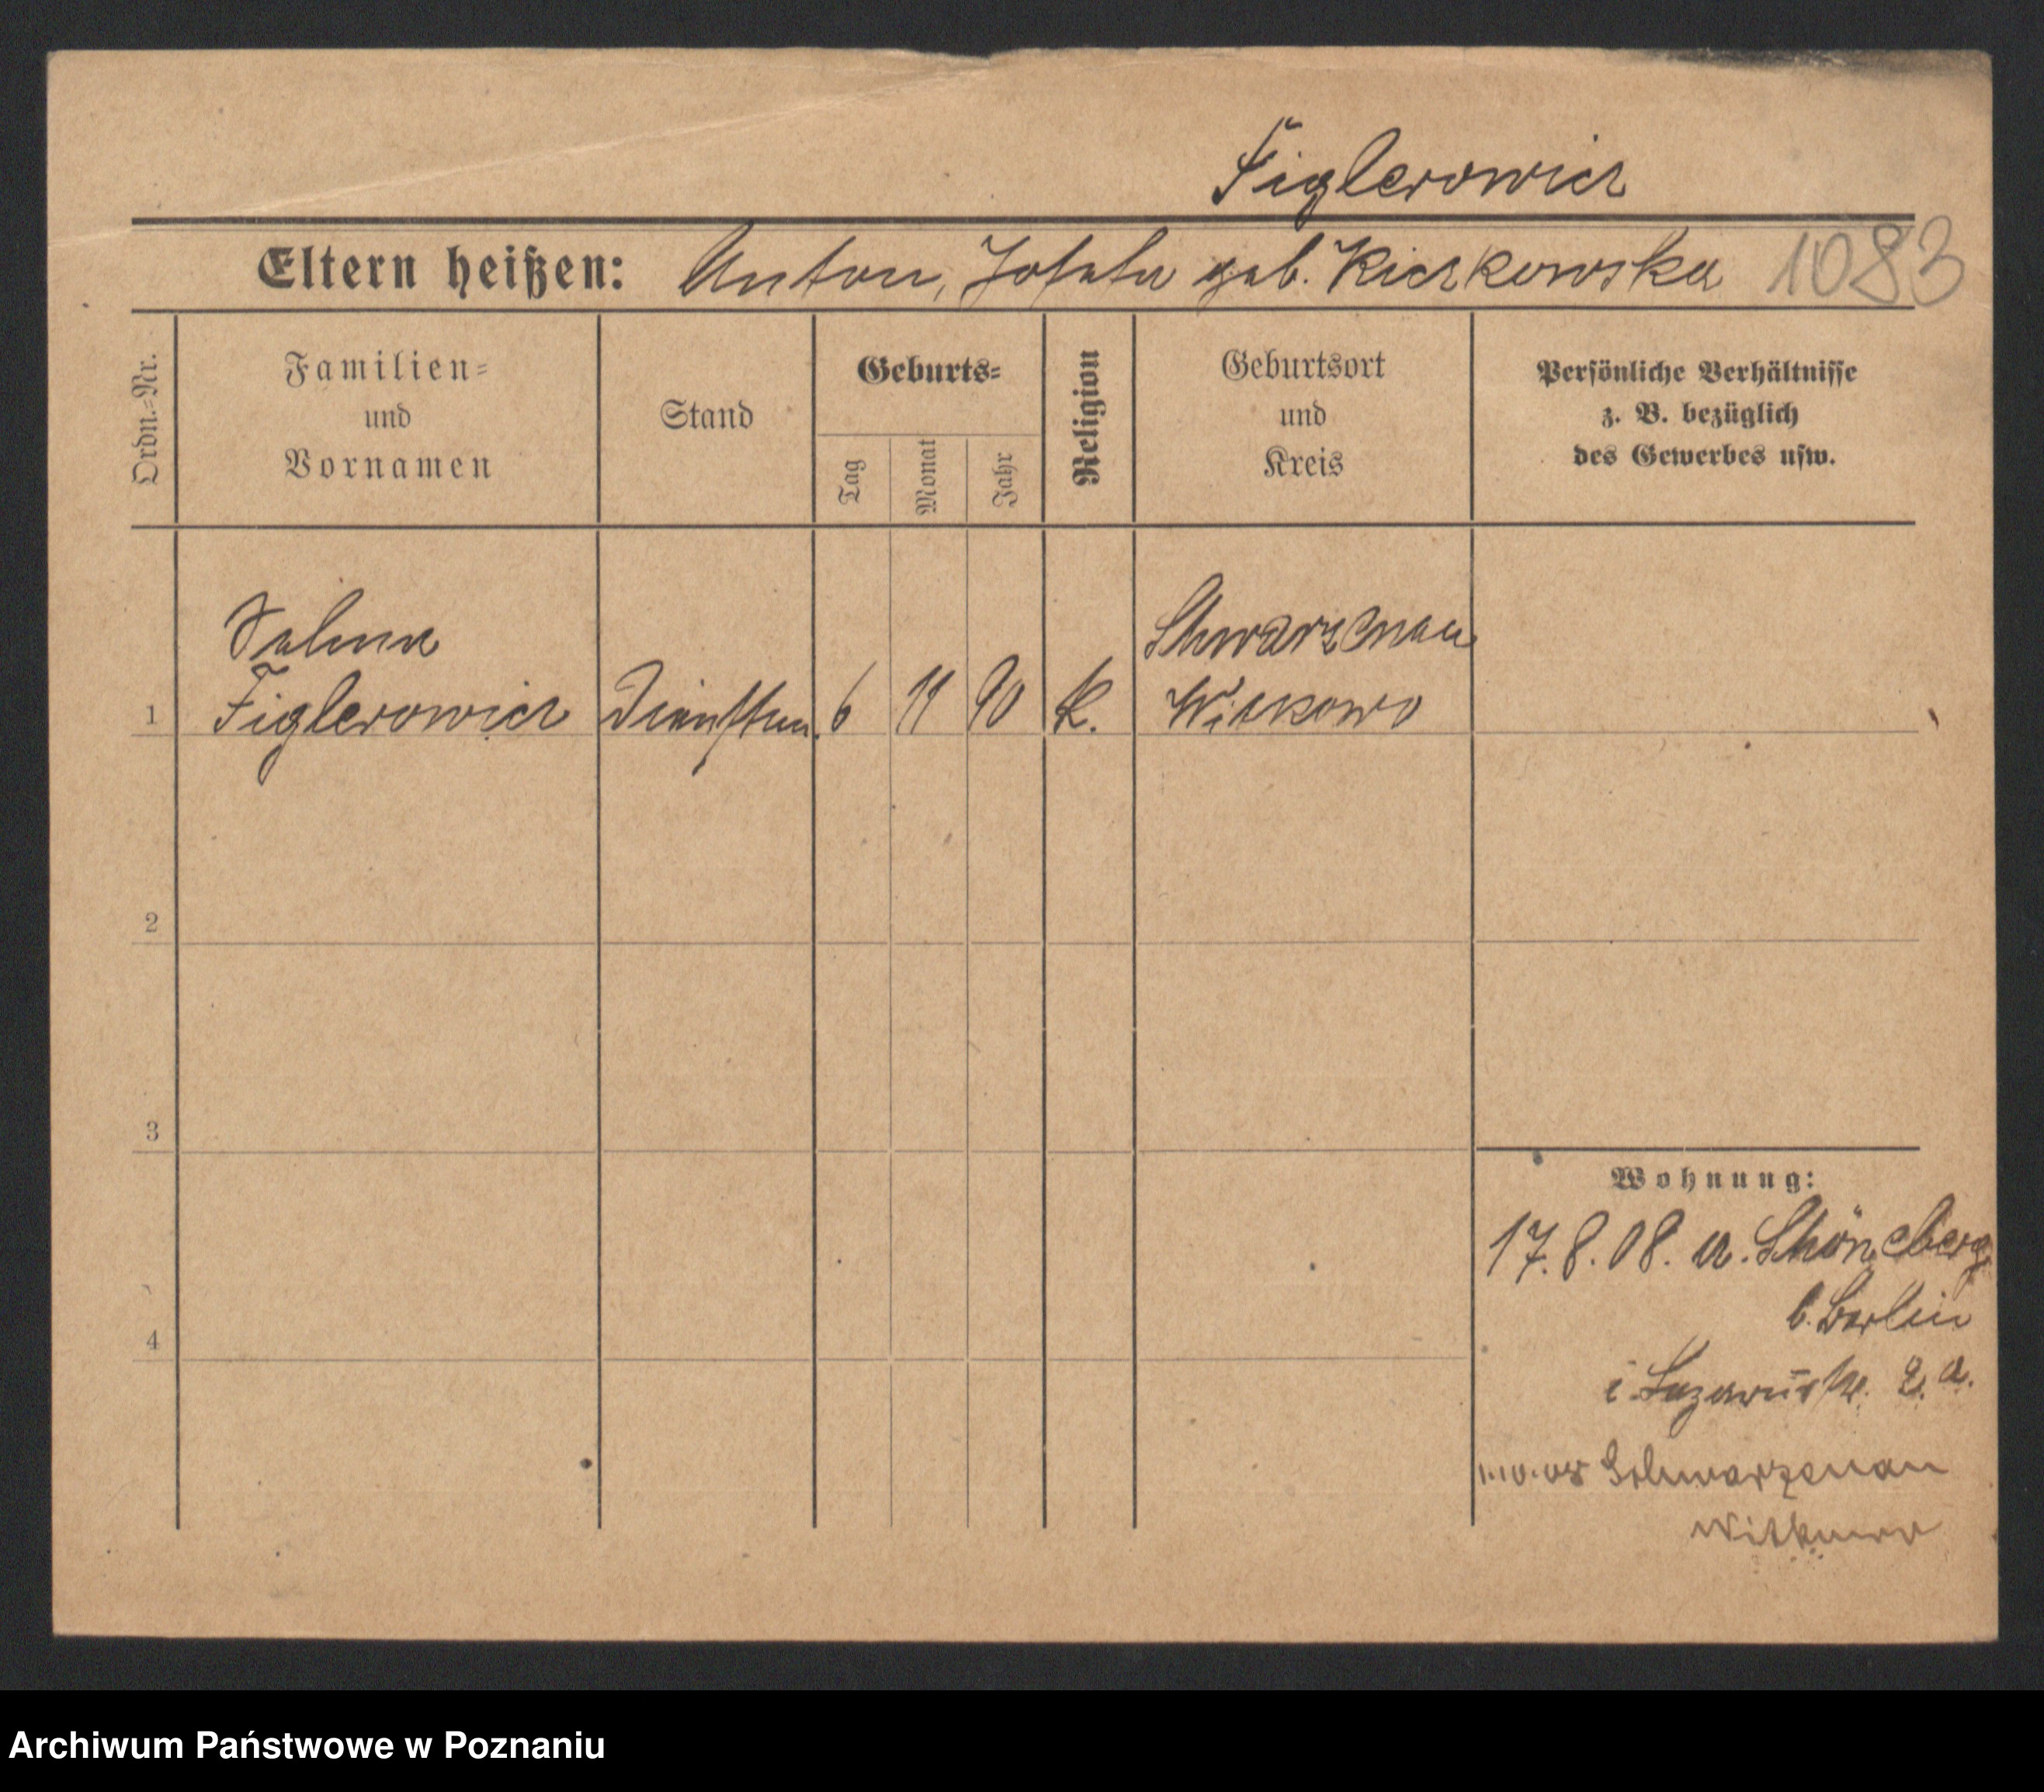 Figlerowicz
Eltern heißen: Anton, Josefa geb. Kiczkowska 1083
Ordn.=Nr.
Familien=
und
Vornamen
Stand
Geburts=
Tag
Monat
Jahr
Religion
Geburtsort
und
Kreis
Persönliche Verhältnisse
z. B. bezüglich
des Gewerbes usw.
Salma
Schwarzenau
1 Figlerowicz 6 11 90 K. Witkowo
2
3
4
Wohnung:
17.8.08. a. Schöneberg
b. Berlin
i. Lazarusstr. 2.a.
1.10.08 Schwarzenau
Witkowo
Archiwum Państwowe w Poznaniu